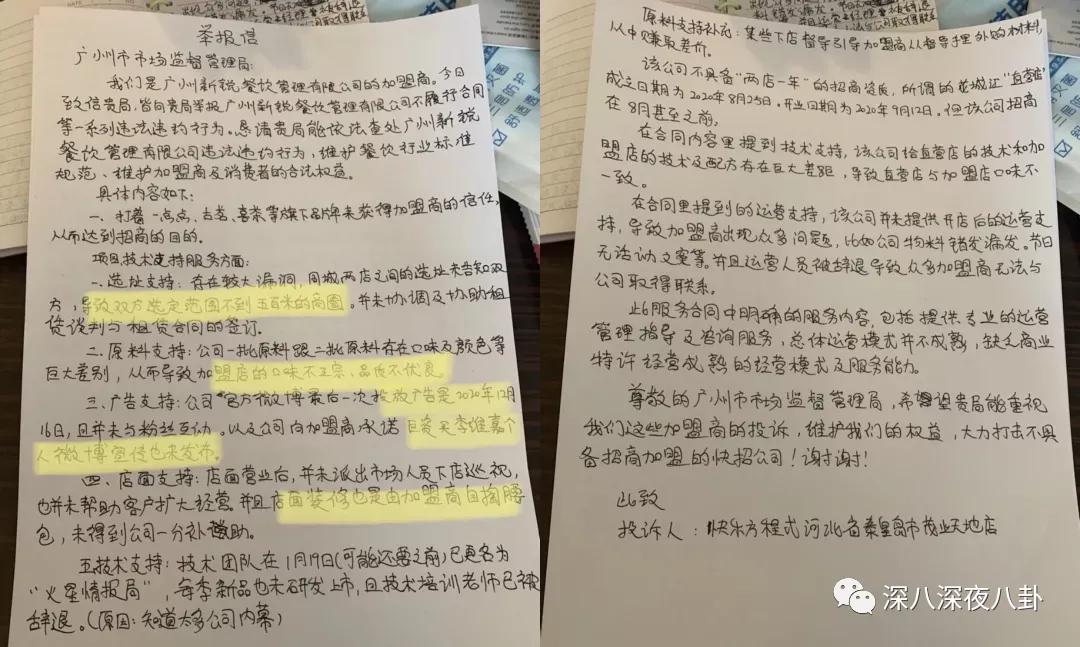 举报信
广州市市场监督管理局:
我们是广州新锐餐饮管理有限公司的加盟商。今日
致信贵局,皆向贵局举报广州新锐餐饮管理有限公司不履行合同
等一系列违法违约行为。恳请贵局能依法查处广州新锐
餐饮管理有限公司违法违约行为,维护餐饮行业标准
规范、维护加盟商及消费者的合法权益。
具体内容如下:
一、打着一点点、古茗、喜茶等旗下品牌来获得加盟商的信任,
从而达到招商的目的。
项目技术支持服务方面:
一.选址支持:存在较大漏洞,同城两店之间的选址未告知双
方,导致双方选定范围不到五百米的商圈。并未协调及协助租
赁谈判与租赁合同的签订。
二.原料支持:公司一批原料跟二批原料存在口味及颜色等
巨大差别,从而导致加盟店的口味不正宗、品质不优良。
三、广告支持:公司"官方微博最后一次投放广告是2020年12月
16日,且并未与粉丝互动。以及公司向加盟商承诺巨资买李维嘉个
人微博宣传也未发布。
四、店面支持:店面营业后,并未派出市场人员下店巡视,
也并未帮助客户扩大经营。并且店面装修也是由加盟商自掏腰
包,未得到公司一分补助。
五技术支持:技术团队在1月19日(可能还要之前)已更名为
"火星情报局",每季新品也未研发上市,且技术培训老师已被
辞退。(原因:知道太多公司内幕)
原料支持补充:某些下店督导引导加盟商从督导手里外购材料,
从中赚取差价。
该公司不具备"两店一年"的招商资质,所谓的花城汇"直营店"
成立日期为2020年8月25日。开业日期为2020年9月12日。但该公司招商
在8月甚至之前。
在合同内容里提到技术支持,该公司给直营店的技术和加
盟店的技术及配方存在巨大差距,导致直营店与加盟店口味不
一致。
在合同里提到的运营支持,该公司并未提供开店后的运营支
持,导致加盟商出现众多问题,比如公司物料错发漏发。节日
无活动文案等。并且运营人员被辞退导致众多加盟商无法与
公司取得联系。
此服务合同中明确的服务内容,包括提供专业的运营
管理指导及咨询服务,总体运营模式并不成熟,缺乏商业
特许经营成熟的经营模式及服务能力。
尊敬的广州市市场监督管理局,希望贵局能重视
我们这些加盟商的投诉,维护我们的权益,大力打击不具
备招商加盟的快招公司!谢谢!
此致
投诉人:快乐方程式河北省秦皇岛市茂业天地店
深八深夜八卦